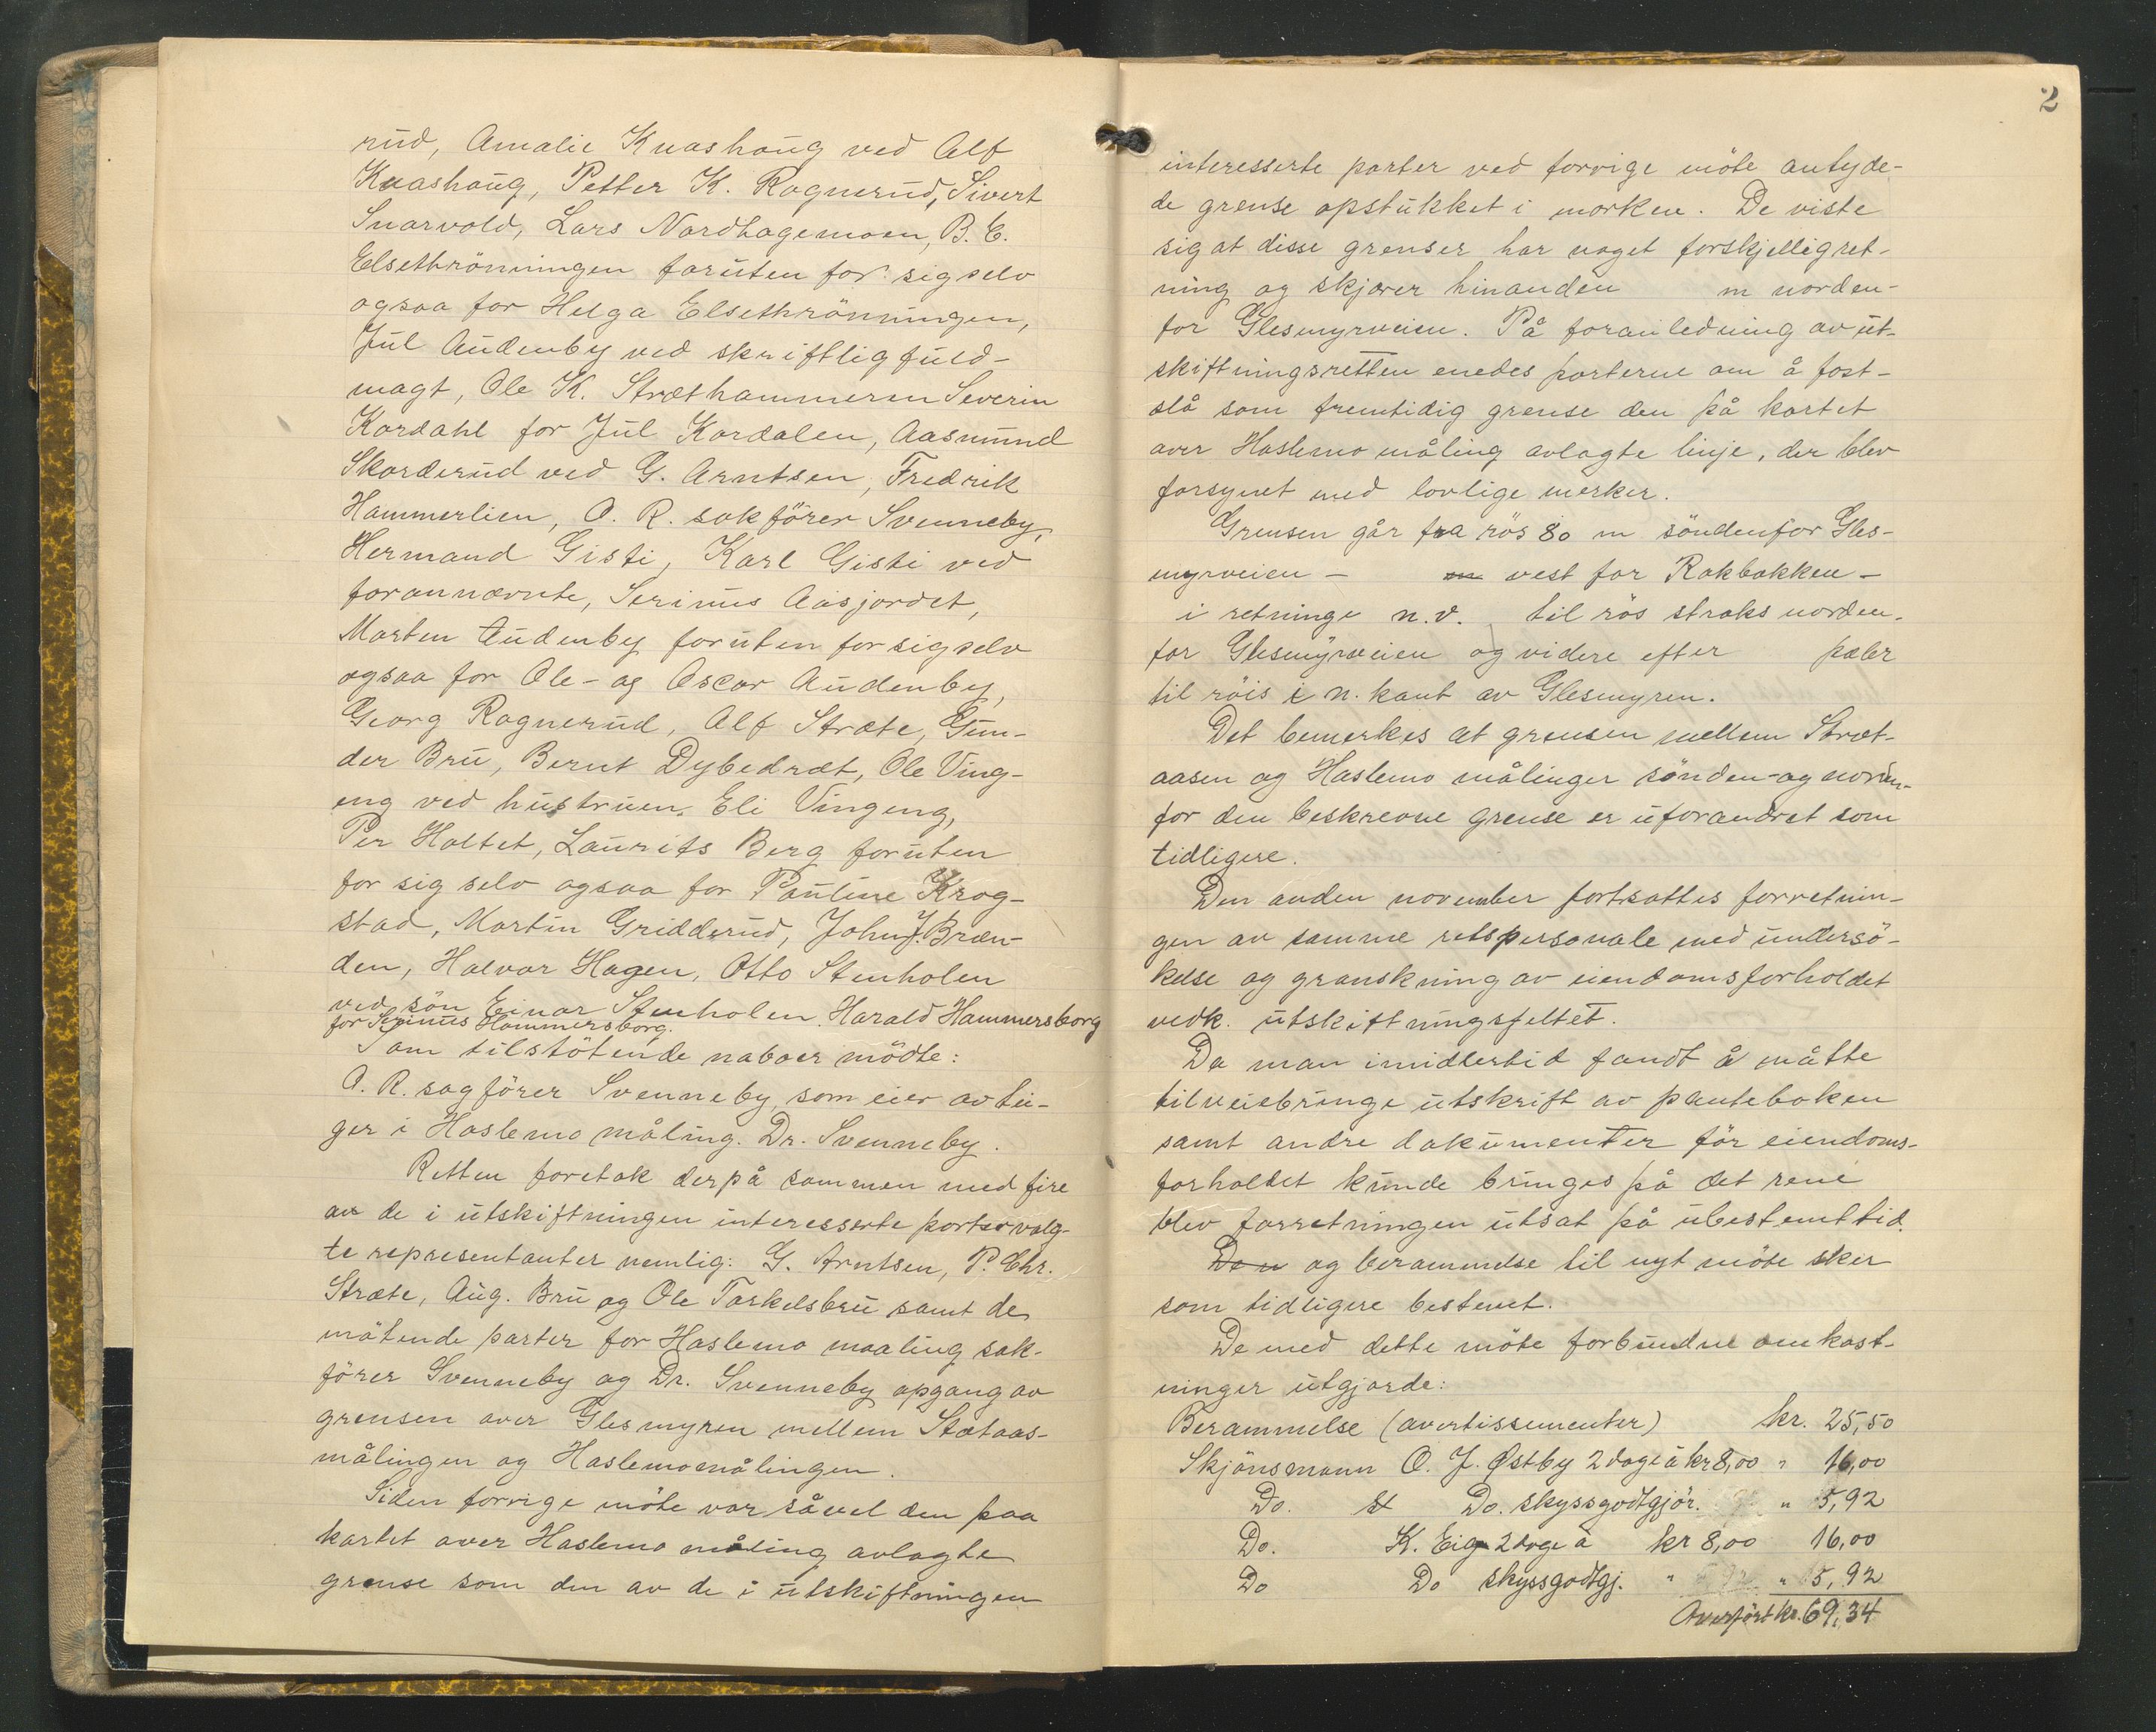 rud, Amalie Knashaug ved Alf
Knashaug, Petter K. Rognerud, Sivert
Snarvold, Lars Nordhagemoen, B. E.
Elsethrönningen foruten for sig selv
ogsaa for Helga Elsethrönningen,
Jul Audenby ved skriftlig fuld-
magt, Ole K. Stræthammeren Severin
Kordahl for Jul Kordalen, Aasmund
Skorderud ved G. Arntsen, Fredrik
Hammerlien, O. R. sakförer Svenneby,
Hermand Gisti, Karl Gisti ved
forannævnte, Serinus Aasjordet,
Morten Audenby foruten for sig selv
ogsaa for Ole- og Oscar Audenby,
Georg Rognerud, Alf Stræte, Gun-
der Bru, Bernt Dybedræt, Ole Ving-
eng ved hustruen Eli Vingeng,
Per Holtet, Laurits Berg foruten
for sig selv ogsaa for Pauline Krog-
stad, Martin Gridderud, John J. Bræn-
den, Halvor Hagen, Otto Stenholen
ved sön Einar Stenholen. Harald Hammersborg
for Serinus Hammersborg.
Som tilstötende naboer mödte:
O. R. sagförer Svenneby som eier av tei-
ger i Haslemo måling. Dr. Svenneby.
Retten foretok derpå sammen med fire
av de i utskiftningen interesserte parter valg-
te representanter nemlig: G. Arntsen, P. Chr.
Stræte, Aug. Bru og Ole Torkelsbru samt de
mötende parter for Haslemo maaling sak-
förer Svenneby og Dr. Svenneby opgang av
grensen over Glesmyren mellem Stætaas-
målingen og Haslemomålingen.
Siden forrige möte var såvel den paa
kartet over Haslemo måling avlagte
grense som den av de i utskiftningen
2
interesserte parter ved forrige möte antyde-
de grense opstukket i marken. De viste
sig at disse grenser har noget forskjellig ret-
ning og skjærer hinanden m norden-
for Glesmyrveien. På foranledning av ut-
skiftningsretten enedes parterne om å fast-
slå som fremtidig grense den på kartet
over Haslemo måling avlagte linje, der blev
forsynet med lovlige merker.
Grensen går fra rös 80 m söndenfor Gles-
myrveien - m vest for Rokbakken -
i retninge n.v. til rös straks norden-
for Glesmyrveien og videre efter pæler
til röis i n. kant av Glesmyren.
Det bemerkes at grensen mellem Stræt-
aasen og Haslemo målinger sönden- og norden-
for den beskrevne grense er uforandret som
tidligere.
Den anden november fortsattes forretnin-
gen av samme retspersonale med undersö-
kelse og granskning av eiendomsforholdet
vedk. utskiftningsfeltet.
Da man imidlertid fandt å måtte
tilveiebringe utskrift av panteboken
samt andre dokumenter för eiendoms-
forholdet kunde bringes på det rene
blev forretningen utsat på ubestemt tid.
Den og berammelse til nyt möte sker
som tidligere bestemt.
De med dette möte forbundne omkost-
ninger utgjorde:
Berammelse (avertissementer) kr. 25,50
Skjönsmann O. J. Østby 2 dage à kr 8,00 " 16,00
Do. Do. skyssgodtgjör. " 5,92
Do. K. Eig 2 dage à kr 8,00 16,00
Do Do skyssgodtgj. " " 5,92
Overfört kr. 69,34